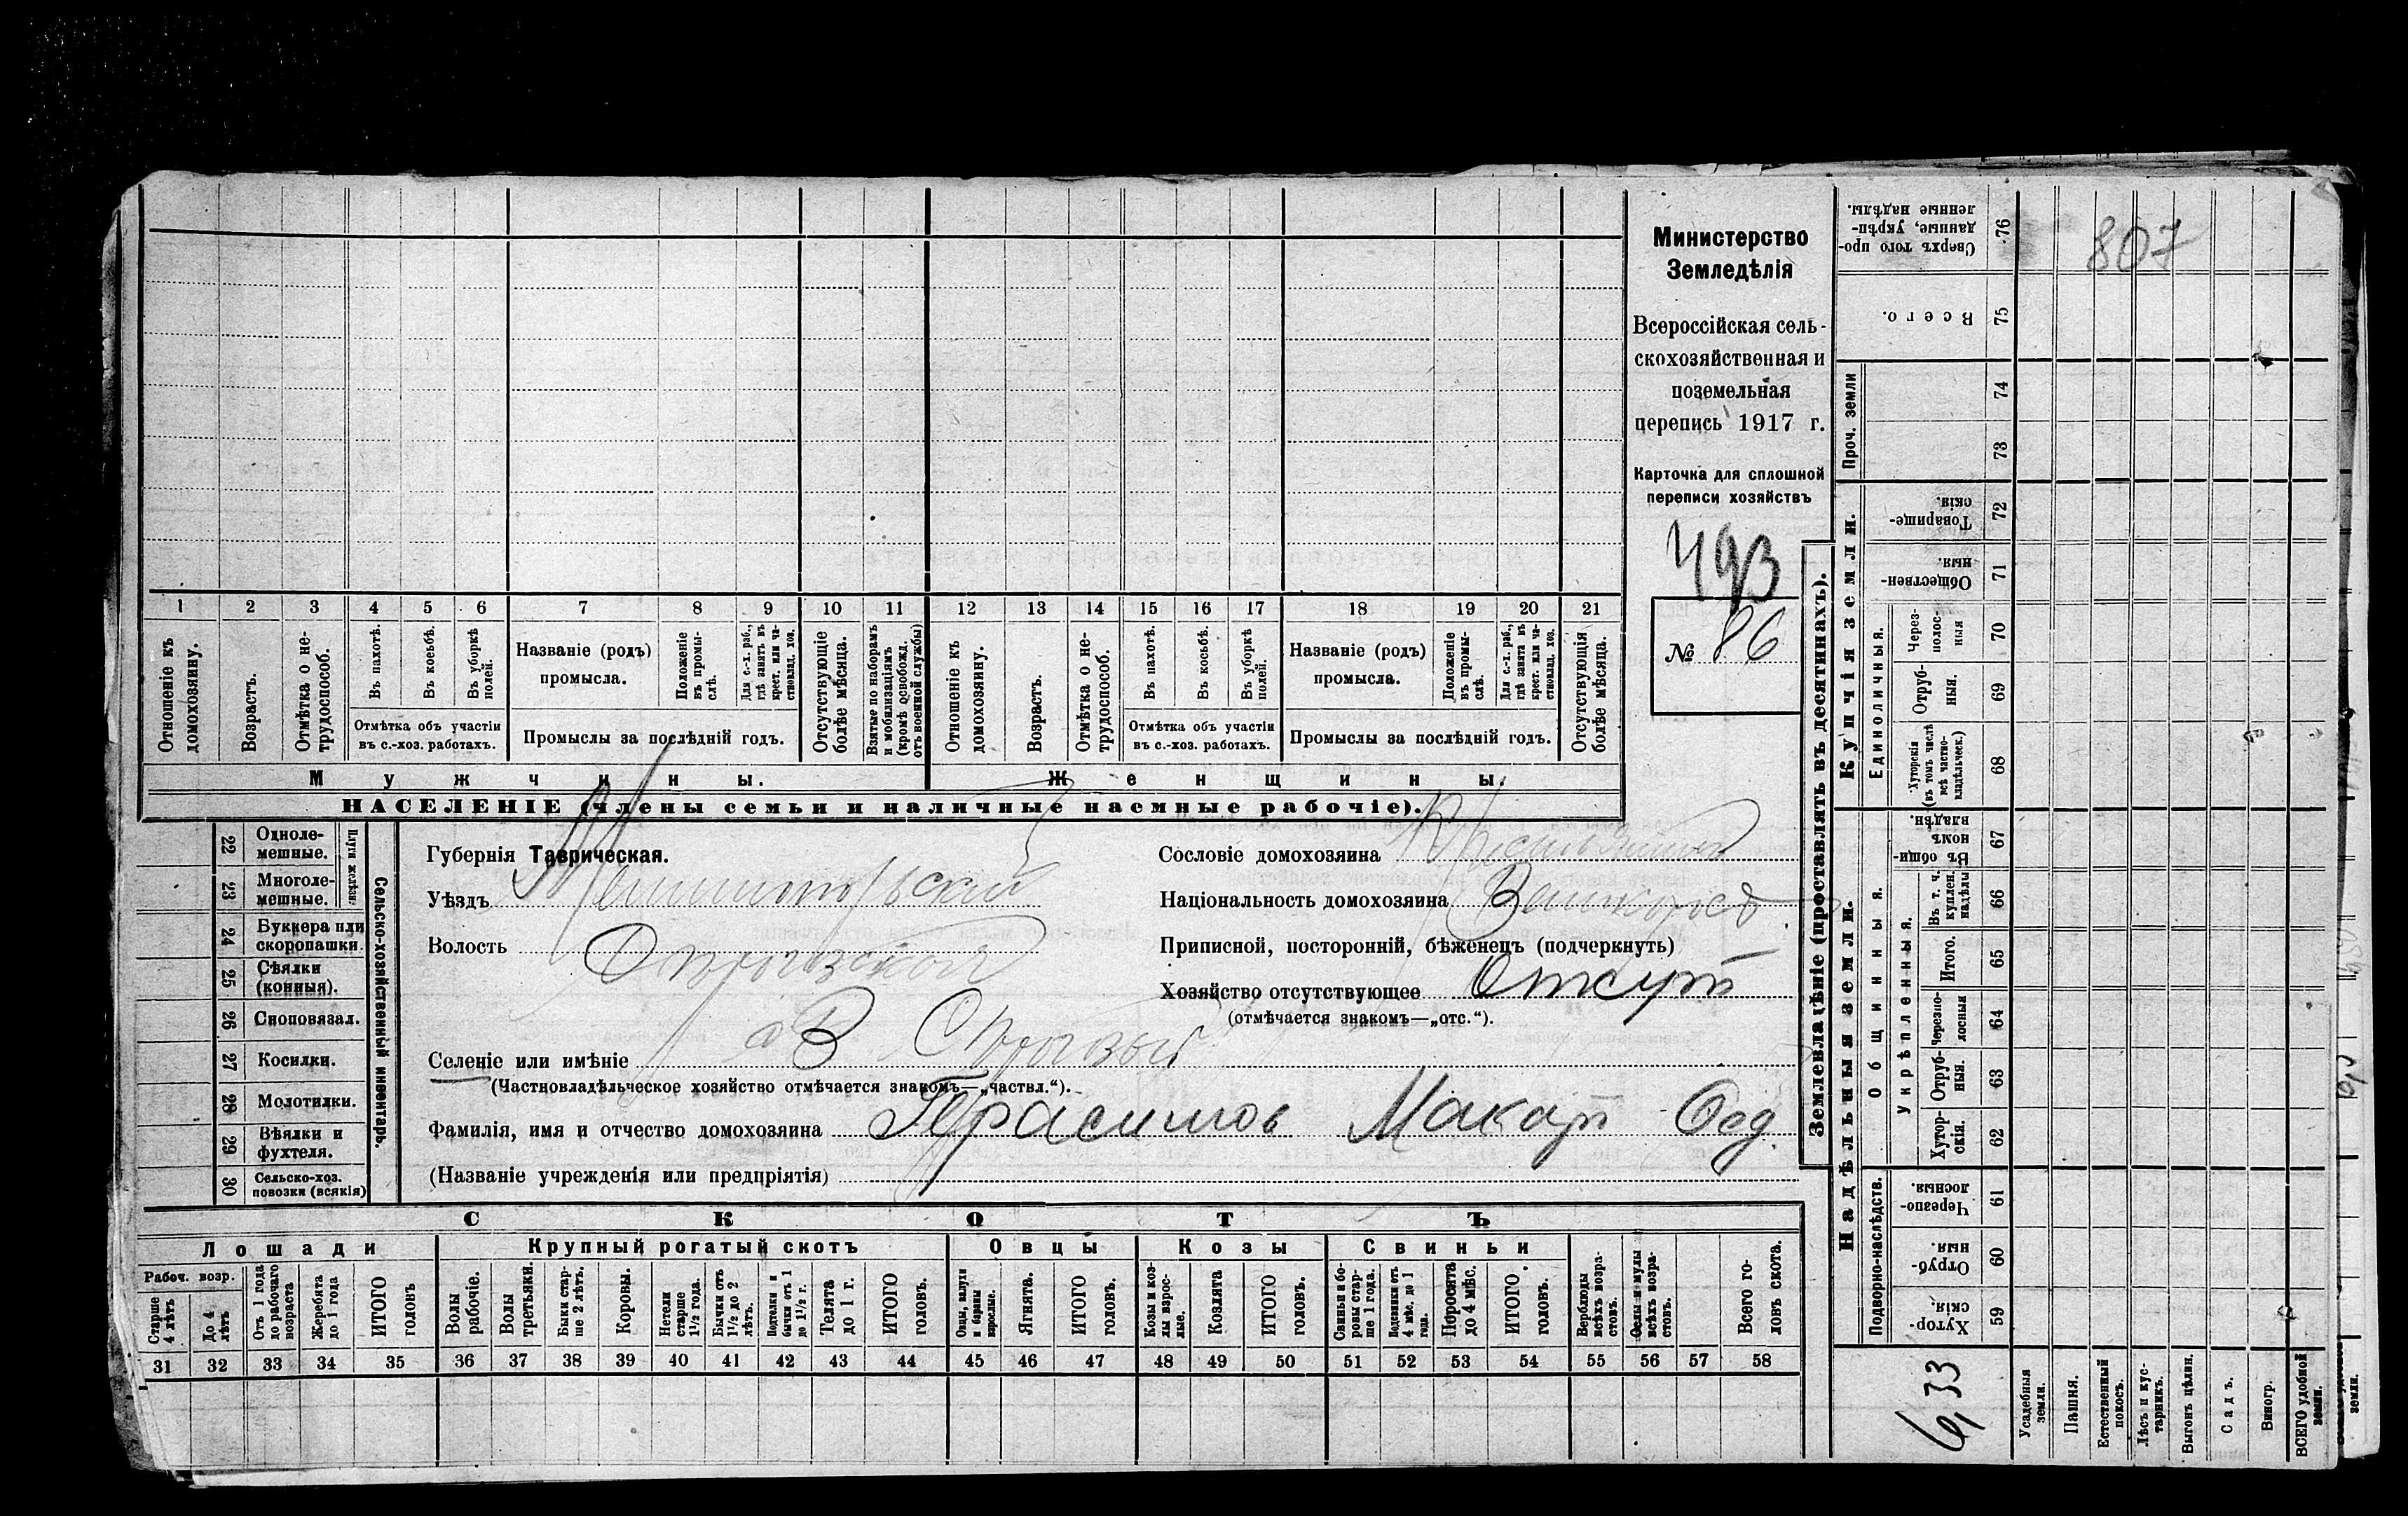 Министерство
Земледѣлія
Всероссійская сель-
скохозяйственная и
поземельная
перепись 1917 г.
Карточка для сплошной
переписи хозяйствъ
493
№ 86
1 2 3 4 5 6 7 8 9 10 11 12 13 14 15 16 17 18 19 20 21
Отношеніе къ домохозяину.
Возрастъ.
Отмѣтка о не-трудоспособ.
Въ пахотѣ.
Въ косьбѣ.
Въ уборкѣ полей.
Отмѣтка объ участіи
въ с.-хоз. работахъ.
Названіе (родъ)
промысла.
Положеніе въ промы-слѣ.
Для с.-х. раб., гдѣ занятъ въ крест. или ча-стновлад. хоз.
Промыслы за послѣдній годъ.
Отсутствующіе болѣе мѣсяца.
Взятые по наборамъ и мобилизаціямъ (кромѣ освобожд. отъ военной службы)
Отношеніе къ домохозяину.
Возрастъ.
Отмѣтка о не-трудоспособ.
Въ пахотѣ.
Въ косьбѣ.
Въ уборкѣ полей.
Отмѣтка объ участіи
въ с.-хоз. работахъ.
Названіе (родъ)
промысла.
Положеніе въ промы-слѣ.
Для с.-х. раб., гдѣ занята въ крест. или ча-стновлад. хоз.
Промыслы за послѣдній годъ.
Отсутствующія болѣе мѣсяца.
Мужчины.
Женщины.
НАСЕЛЕНІЕ (члены семьи и наличные наемные рабочіе).
Сельско-хозяйственный инвентарь.
Плуги желѣзн.
22 Одноле-мешные.
23 Многоле-мешные.
24 Буккера или скоропашки.
25 Сѣялки (конныя).
26 Сноповязал.
27 Косилки.
28 Молотилки.
29 Вѣялки и фухтеля.
30 Сельско-хоз. повозки (всякія)
Губернія Таврическая.
Уѣздъ
Волость
Селеніе или имѣніе
(Частновладѣльческое хозяйство отмѣчается знакомъ—„частвл.“).
Сословіе домохозяина
Національность домохозяина
Приписной, посторонній, бѣженецъ (подчеркнуть)
Хозяйство отсутствующее Отсут
(отмѣчается знакомъ—„отс.“).
Фамилія, имя и отчество домохозяина Герасимов Макар Фед.
(Названіе учрежденія или предпріятія)
СКОТЪ
Лошади
Крупный рогатый скотъ
Овцы
Козы
Свиньи
Рабоч. возр.
Старше 4 лѣтъ
До 4 лѣтъ
Отъ 1 года до рабочаго возраста
Жеребята до 1 года
ИТОГО головъ
Волы рабочіе.
Волы третьяки.
Быки стар-ше 2 лѣтъ.
Коровы.
Нетели старше 1½ года.
Бычки отъ 1½ до 2 лѣтъ.
Подтелки и бычки отъ 1 до 1½ г.
Телята до 1 г.
ИТОГО головъ.
Овцы, валухи и бараны взрослые.
Ягнята.
ИТОГО головъ.
Козы и коз-лы взрос-лые.
Козлята
ИТОГО головъ.
Свиньи и бо-ровы стар-ше 1 года.
Подсвинки отъ 4 мѣс. до 1 года.
Поросята до 4 мѣс.
ИТОГО головъ.
Верблюды всѣхъ возра-стовъ.
Ослы и мулы всѣхъ возра-стовъ.
Всего го-ловъ скота.
31 32 33 34 35 36 37 38 39 40 41 42 43 44 45 46 47 48 49 50 51 52 53 54 55 56 57 58
Землевладѣніе (проставлять въ десятинахъ).
Надѣльныя земли.
Купчія земли.
Проч. земли
Подворно-наслѣдств.
Общинныя.
Укрѣпленныя.
Единоличныя.
Сверхъ того про-данные, укрѣп-ленные надѣлы. 76
807
Всего. 75
74
73
Товарище-скія. 72
Обществен-ныя. 71
Через-полос-ныя 70
Отруб-ныя. 69
Хуторскія (въ томъ числѣ всѣ частно-владѣльческ.) 68
Въ общин-номъ владѣн. 67
Въ т. ч. куплен. надѣлы 66
Итого. 65
Черезпо-лосныя 64
Отруб-ныя. 63
Хутор-скія. 62
Черезпо-лосныя. 61
Отруб-ныя. 60
Хутор-скія. 59
6,33
Усадебныя земли.
Пашня.
Естественный покосъ.
Лѣсъ и кус-тарникъ.
Выгонъ цѣлин.
Садъ.
Виногр.
ВСЕГО удобной земли.